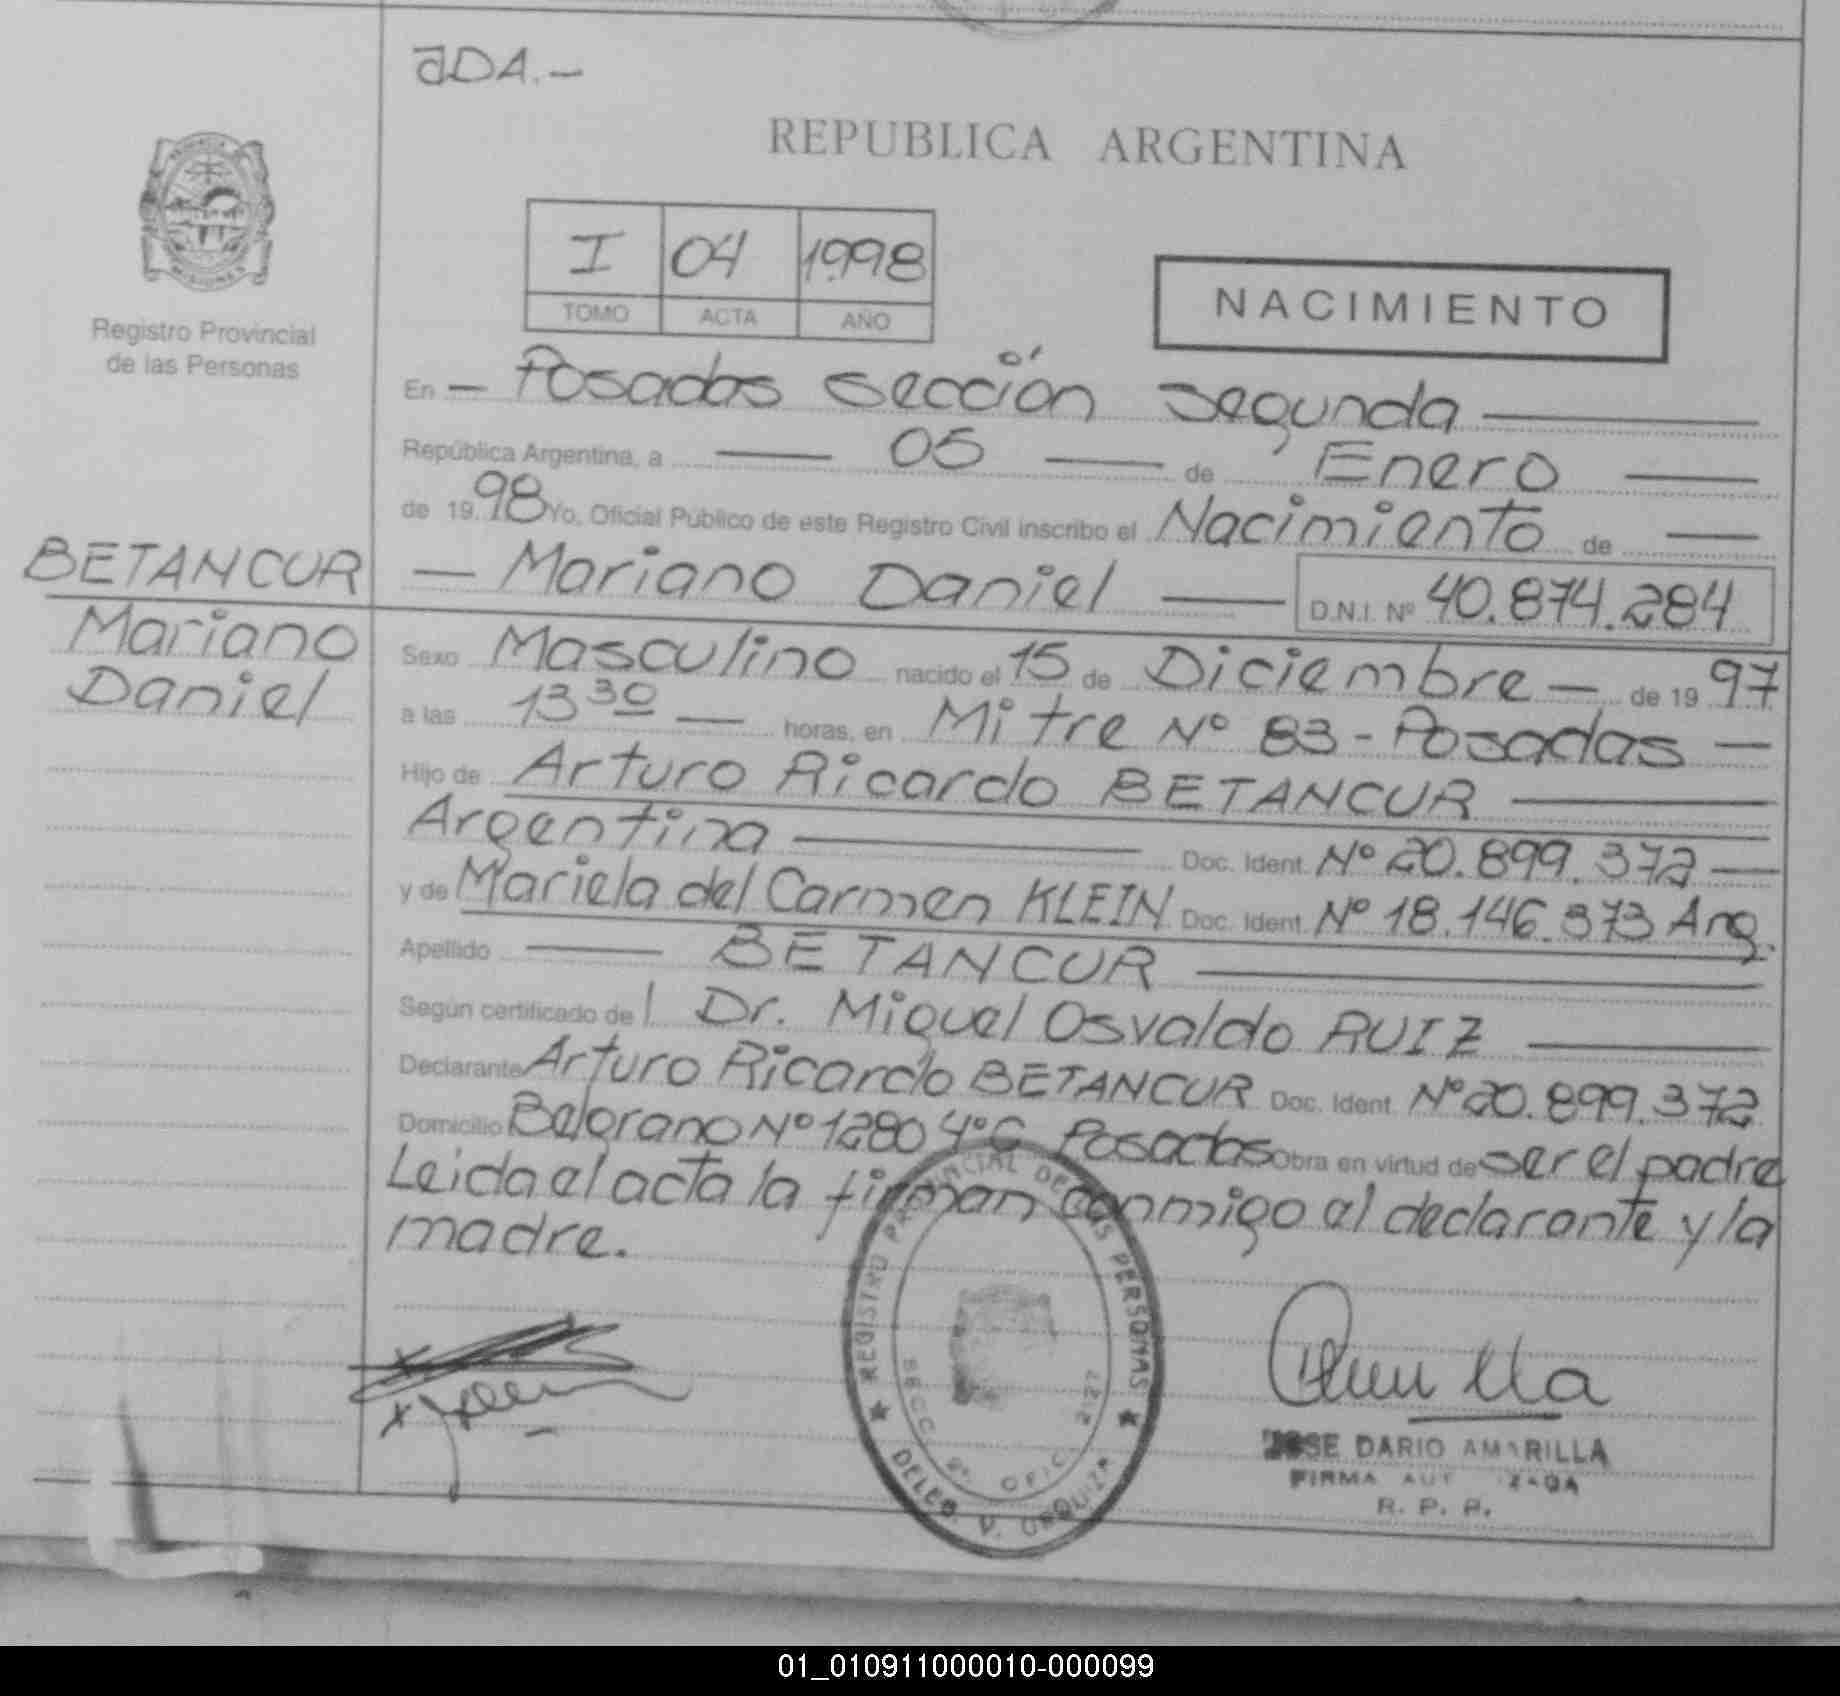 JDA.-
REPUBLICA ARGENTINA
MISIONES
Registro Provincial
de las Personas
I 04 1998
TOMO ACTA AÑO
NACIMIENTO
En — Posadas sección Segunda —
República Argentina, a — 05 — de Enero —
de 19 98 Yo, Oficial Público de este Registro Civil inscribo el Nacimiento de —
BETANCUR
Mariano
Daniel
— Mariano Daniel — D.N.I. Nº 40.874.284
Sexo Masculino nacido el 15 de Diciembre — de 19 97
a las 13 30 — horas, en Mitre Nº 83 - Posadas —
Hijo de Arturo Ricardo BETANCUR —
Argentina — Doc. Ident. Nº 20.899.372 —
y de Mariela del Carmen KLEIN Doc. Ident. Nº 18.146.373 Arg.
Apellido — BETANCUR —
Según certificado del Dr. Miguel Osvaldo RUIZ —
Declarante Arturo Ricardo BETANCUR Doc. Ident. Nº 20.899.372
Domicilio Belgrano Nº 1280 4º C Posadas Obra en virtud de ser el padre
Leida el acta la firman conmigo el declarante y la
madre.
REGISTRO PROVINCIAL DE LAS PERSONAS
SECC. 2ª OFIC. 2127
DELEG. V. URQUIZA
JOSE DARIO AMARILLA
FIRMA AUTORIZADA
R. P. P.
01_010911000010-000099